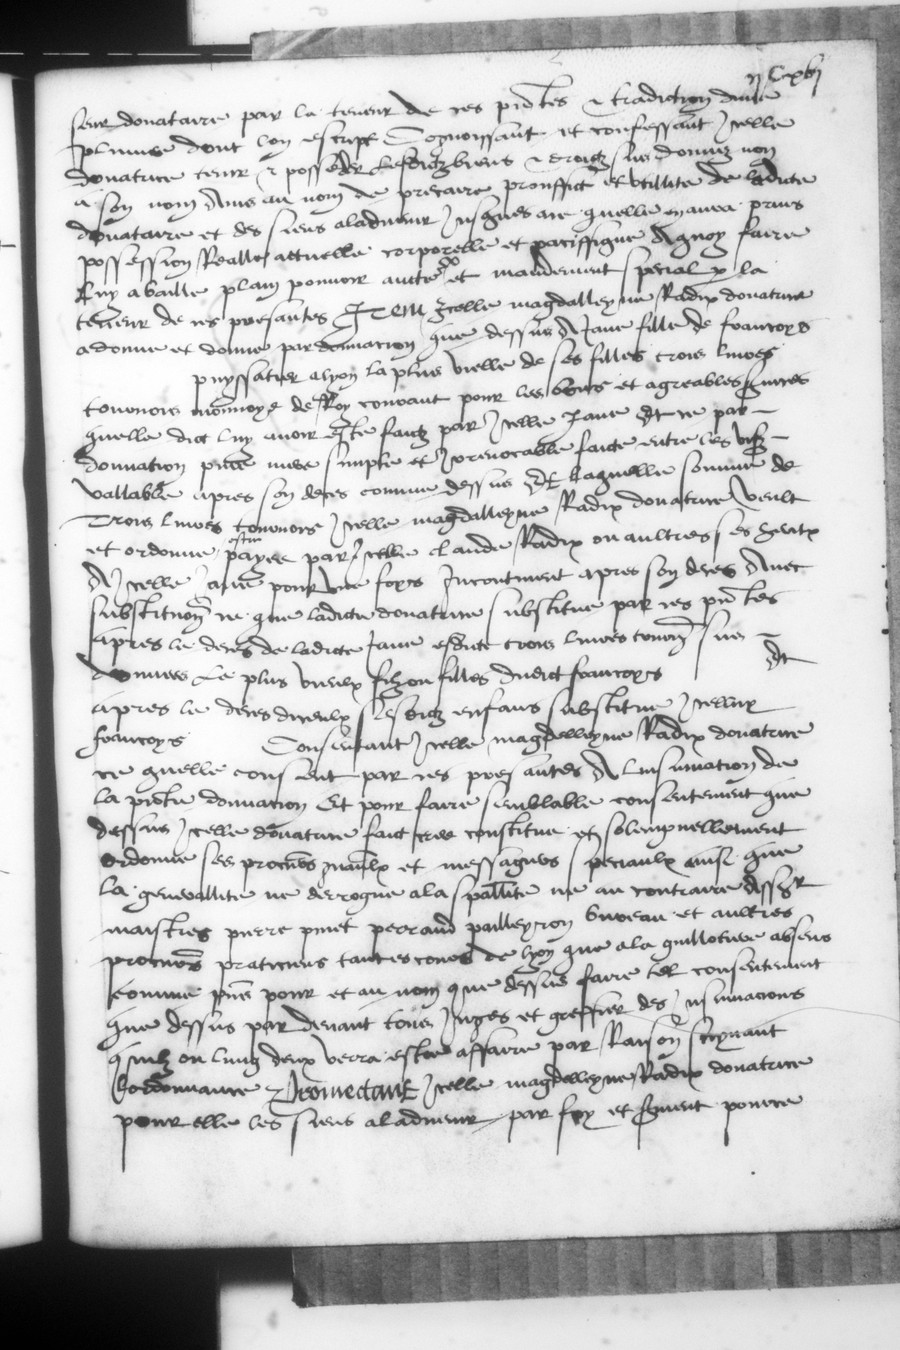 ii Cxvi
seur donataire par la teneur de ces pntes & tradiction dune
plume dont lon escript Cognoissant et confessant icelle
donatrice tenir & posseder lesdictz biens & droictz sus donnez non
a son nom Ains au nom de precaire prouffict et utillite de ladicte
donataire et des siens aladvenir jusques ace quelle en aura prins
possession Realle actuelle corporelle et paciffique A quoy faire
luy a baille plain pouvoir aucte et mandement special p la
teneur de ces presantes Item Icelle magdalleyne Radix donatrice
a donne et donne par donnacion que dessus A Jane fille de francoys
puyssatier a lyon la plus vielle de ses filles trois livres
tournois monnoye de Roy courant pour les bons et agreables services
quelle dict luy avoir este faictz par icelle Jane Et ce par
donnation pure mere simple et irrevocable faicte entre les vifz
vallable apres son deces comme dessus Et laquelle somme de
Trois livres tournois icelle magdalleyne Radix donatrice veult
et ordonne estre payee par icelle claude Radix ou aultres ses heretx
A icelle Jane pour une foys Incontinent apres son deces Avec
substitution ce que ladicte donatrice substitue par ces pntes
apres le deces de ladicte Jane esdicte trois livres tourn sus
donnees Le plus vieulx filz ou filles dudict francoys Et
apres le deces diceulx lesdictz enfans substitue icelluy
francoys Consentant icelle magdelleyne Radix donatrice
ce quelle consent par ces presantes A linsinuation de
la pnte donnation Et pour faire semblable consentement que
dessus icelle donatrice faict cree constitue et solempnellement
ordonne ses procureurs generaulx et messagiers speciaulx ainsi que
la generallite ne derrogue a la spallite ne au contraire Assr
maistres pierre pinet perraud pailleyron bureau et aultres
procureurs praticiens tant es cours de lyon que a la guillotiere absens
comme pns pour et au nom que dessus faire tel consentement
que dessus par devant tous juges et greffier des insinuacions
quilz ou lung deux verra estre affaire par Raison suyvant
lordonnance Promectant icelle magdelleyne Radix donatrice
pour elle les siens aladvenir par foy et serment pource